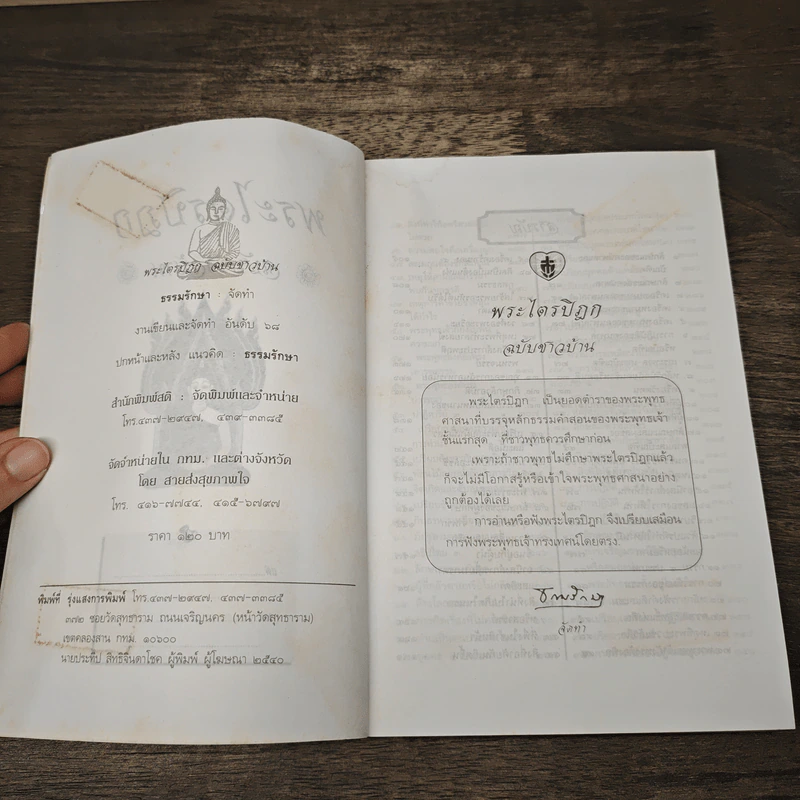 พระไตรปิฎก ฉบับชาวบ้าน
ธรรมรักษา : จัดทำ
งานเขียนและจัดทำ อันดับ ๖๘
ปกหน้าและหลัง แนวคิด : ธรรมรักษา
สำนักพิมพ์สติ : จัดพิมพ์และจำหน่าย
โทร.๔๓๗-๒๙๔๗, ๔๓๙-๓๓๘๕
จัดจำหน่ายใน กทม. และต่างจังหวัด
โดย สายส่งสุขภาพใจ
โทร. ๔๑๖-๗๗๔๔, ๔๑๕-๖๗๙๗
ราคา ๑๒๐ บาท
พิมพ์ที่ รุ่งแสงการพิมพ์ โทร.๔๓๗-๒๙๔๗, ๔๓๗-๓๓๘๕
๓๗๒ ซอยวัดสุทธาราม ถนนเจริญนคร (หน้าวัดสุทธาราม)
เขตคลองสาน กทม. ๑๐๖๐๐
นายประทีป สิทธิจินดาโชค ผู้พิมพ์ ผู้โฆษณา ๒๕๔๐
พระไตรปิฎก
ฉบับชาวบ้าน
พระไตรปิฎก เป็นยอดตำราของพระพุทธ
ศาสนาที่บรรจุหลักธรรมคำสอนของพระพุทธเจ้า
ชั้นแรกสุด ที่ชาวพุทธควรศึกษาก่อน
เพราะถ้าชาวพุทธไม่ศึกษาพระไตรปิฎกแล้ว
ก็จะไม่มีโอกาสรู้หรือเข้าใจพระพุทธศาสนาอย่าง
ถูกต้องได้เลย
การอ่านหรือฟังพระไตรปิฎก จึงเปรียบเสมือน
การฟังพระพุทธเจ้าทรงเทศน์โดยตรง
ธรรมรักษา
จัดทำ